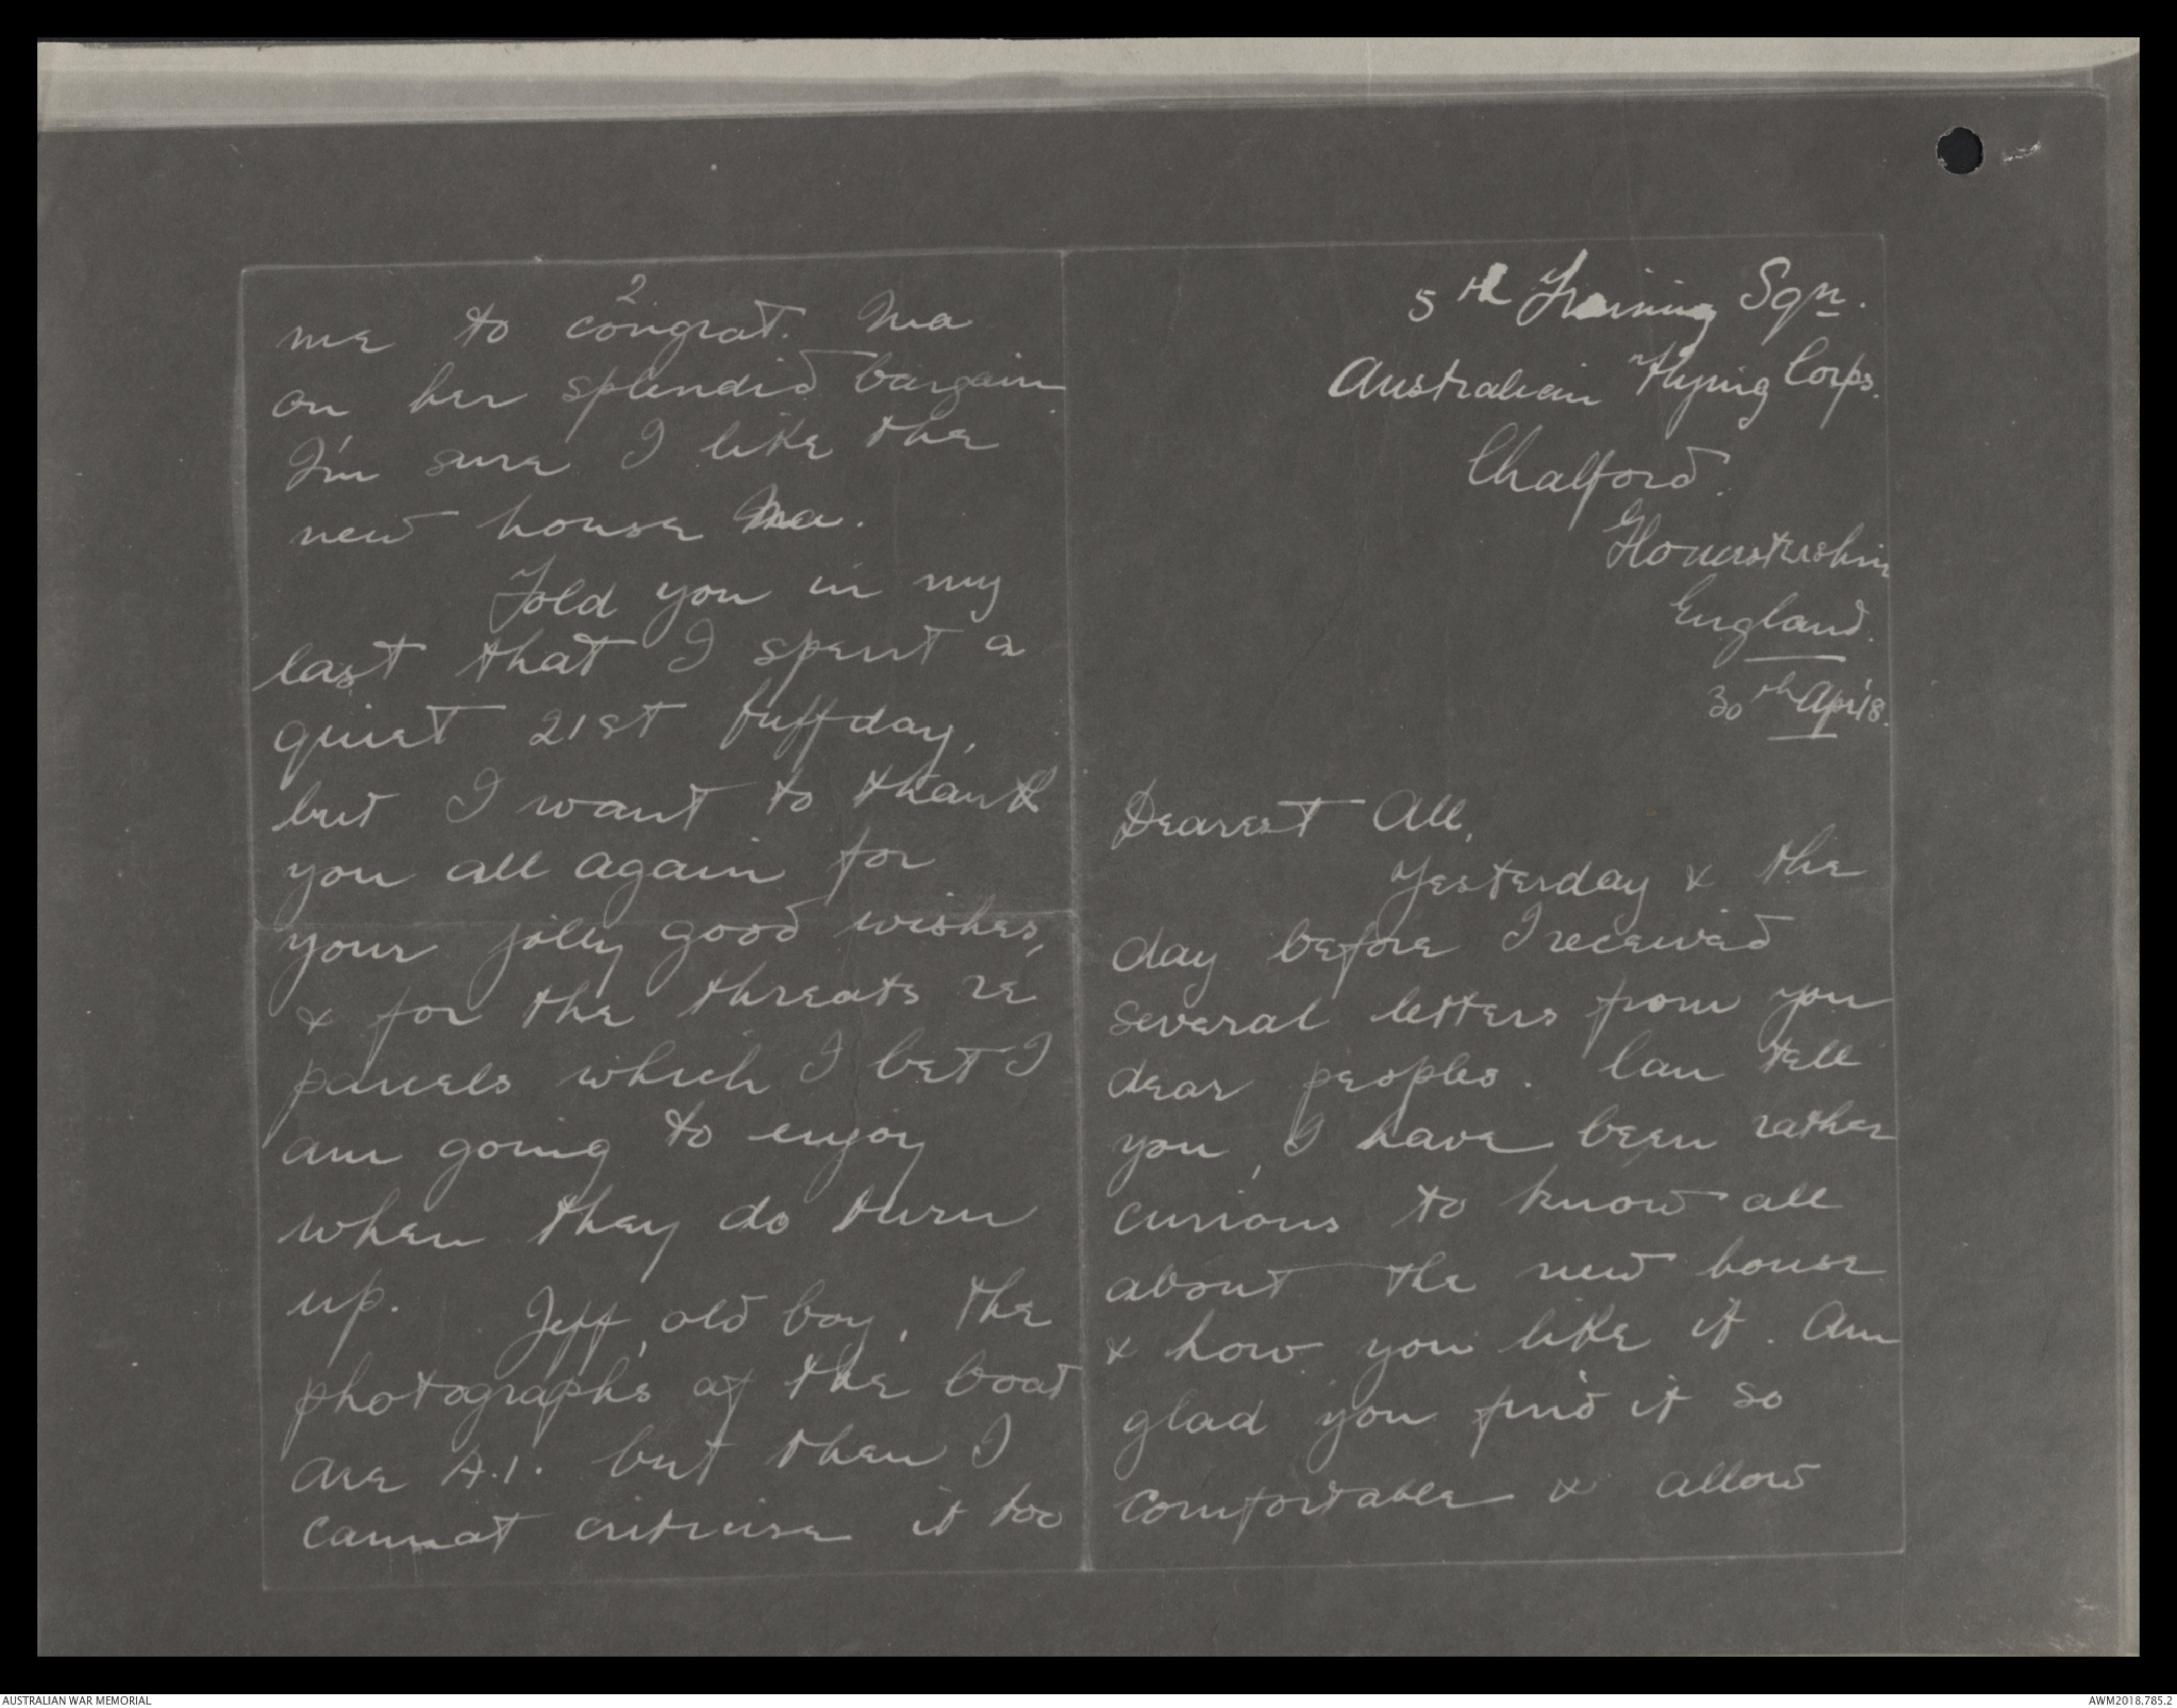 5th Training Sqn.
Australian Flying Corps.
Chalford.
Gloucestershire
England.
30th Apr 18.
Dearest All,
Yesterday & the
day before I received
several letters from you
dear peoples. Can tell
you, I have been rather
curious to know all
about the new house
& how you like it. Am
glad you find it so
comfortable & allow
2.
me to congrat. Ma
on her splendid bargain.
I'm sure I like the
new house Ma.
Told you in my
last that I spent a
quiet 21st buffday,
but I want to thank
you all again for
your jolly good wishes,
& for the threats re
parcels which I bet I
am going to enjoy
when they do turn
up. Jeff, old boy, the
photographs of the boat
are A.1. but then I
cannot criticise it too
AUSTRALIAN WAR MEMORIAL
AWM2018.785.2